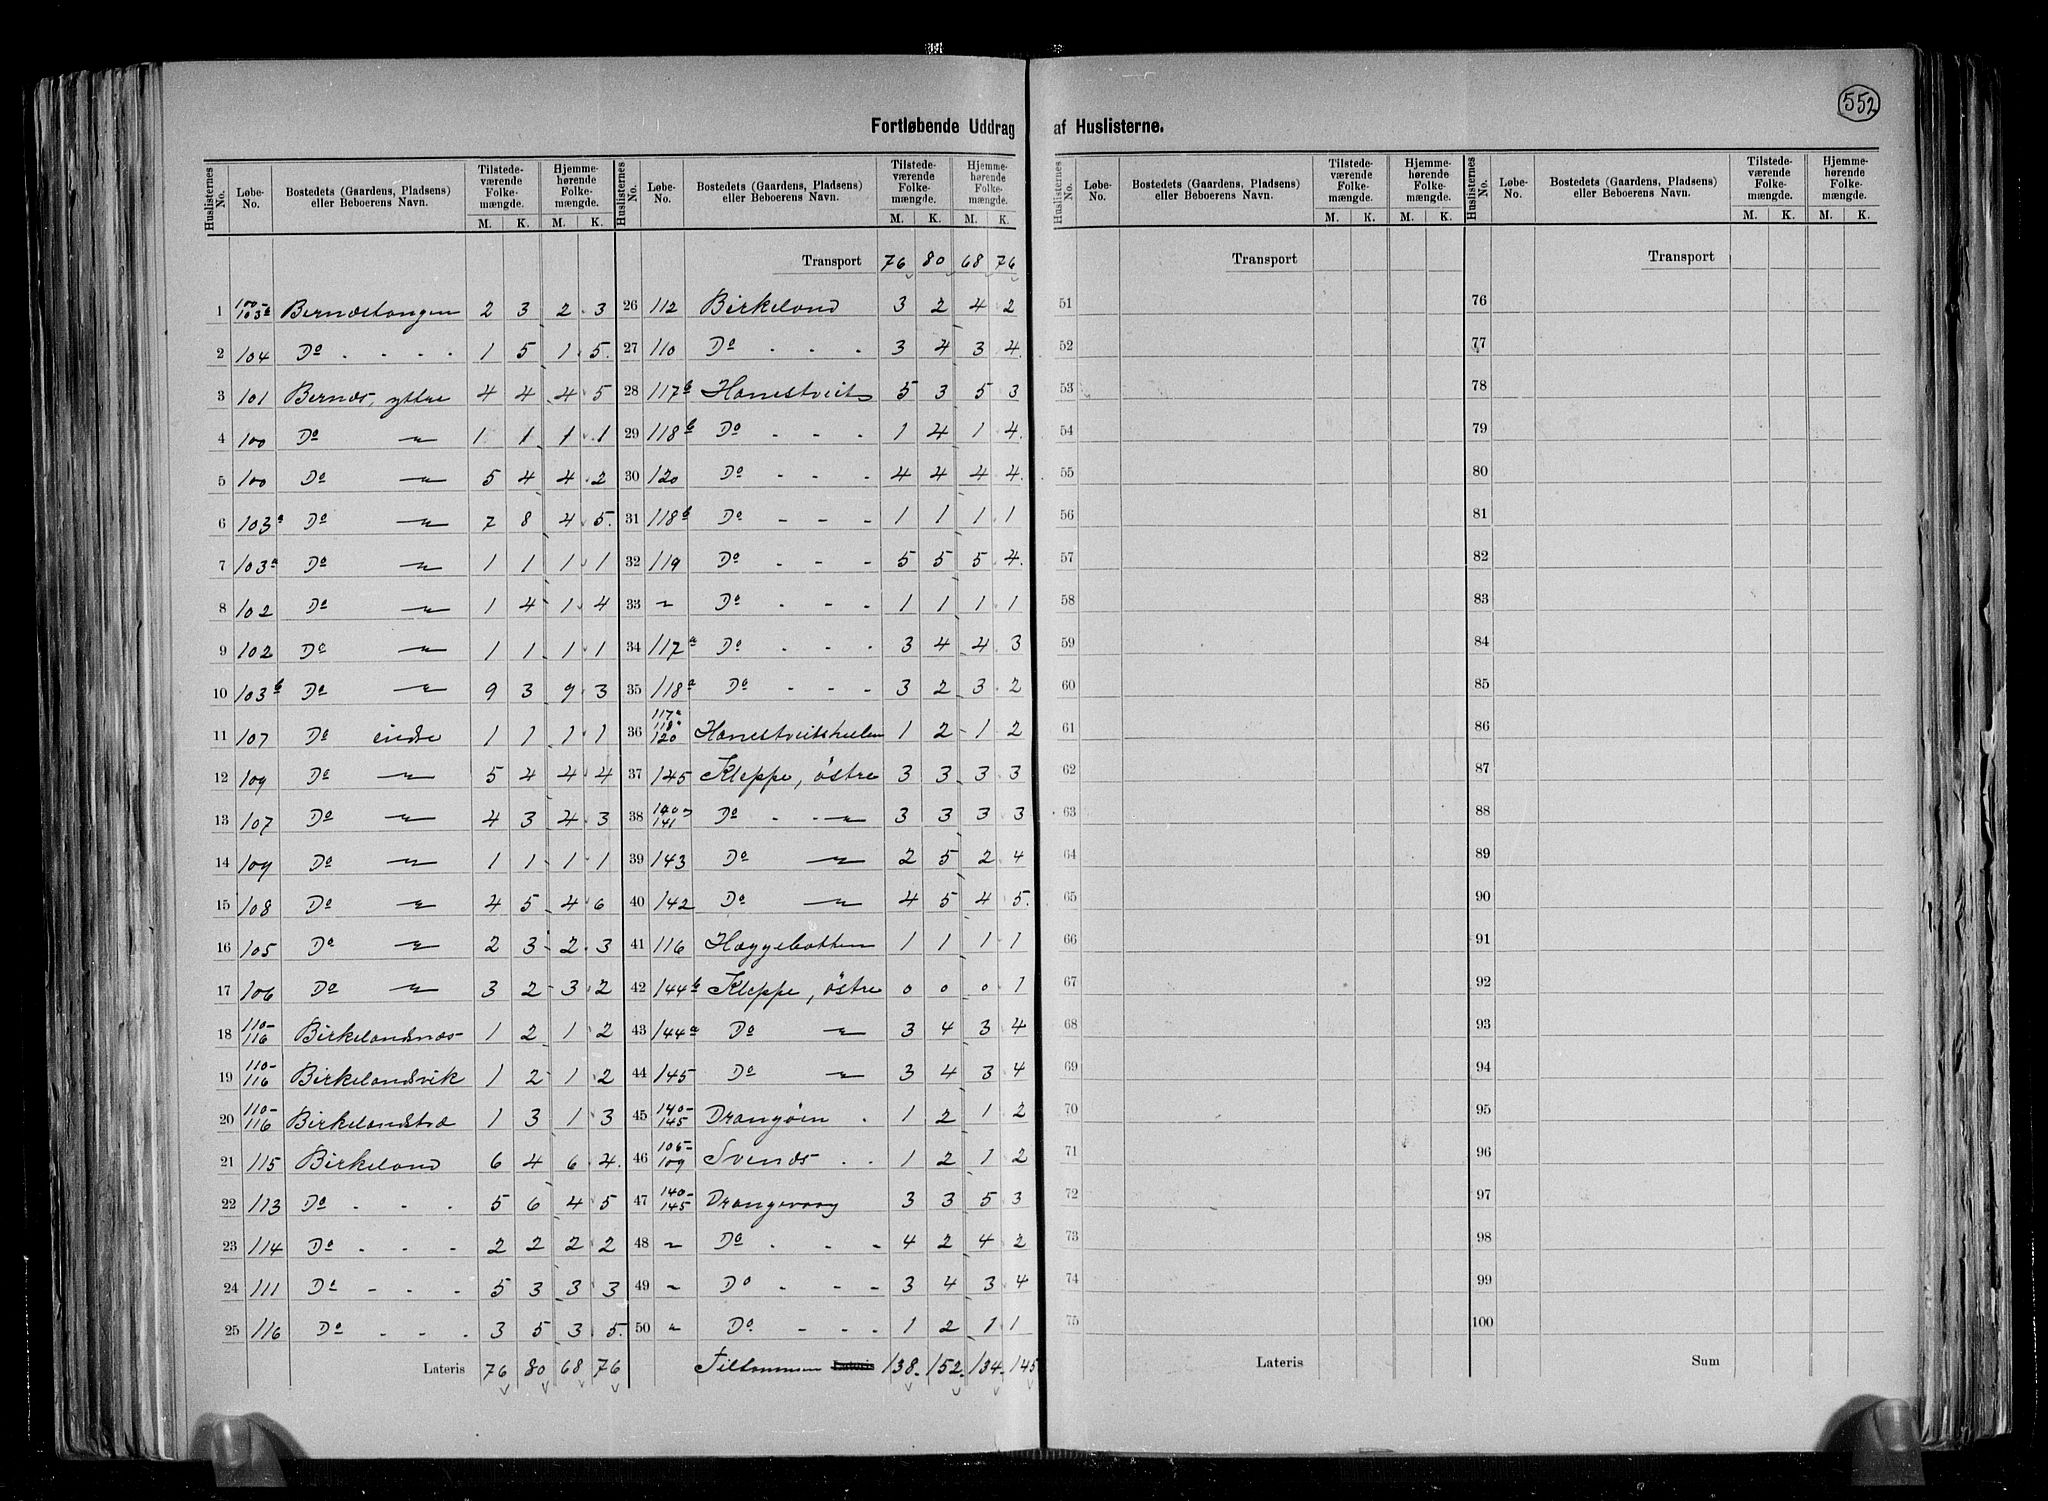 552
Fortløbende Uddrag af Huslisterne.
Huslisternes No. Løbe-No. Bostedets (Gaardens, Pladsens) eller Beboerens Navn. Tilstedeværende Folkemængde. M. K. Hjemmehørende Folkemængde. M. K.
1 100-103a Bernæstangen 2 3 2 3
2 104 Do 1 5 1 5
3 101 Bernæs, yttre 4 4 4 5
4 100 Do " 1 1 1 1
5 100 Do " 5 4 4 2
6 103a Do " 7 8 4 5
7 103a Do " 1 1 1 1
8 102 Do " 1 4 1 4
9 102 Do " 1 1 1 1
10 103b Do " 9 3 9 3
11 107 Do indre 1 1 1 1
12 109 Do " 5 4 4 4
13 107 Do " 4 3 4 3
14 109 Do " 1 1 1 1
15 108 Do " 4 5 4 6
16 105 Do " 2 3 2 3
17 106 Do " 3 2 3 2
18 110-116 Birkelandsnæs 1 2 1 2
19 110-116 Birkelandsvik 1 2 1 2
20 110-116 Birkelandstræ 1 3 1 3
21 115 Birkeland 6 4 6 4
22 113 Do 5 6 4 5
23 114 Do 2 2 2 2
24 111 Do 5 3 3 3
25 116 Do 3 5 3 5
Lateris 76 80 68 76
Huslisternes No. Løbe-No. Bostedets (Gaardens, Pladsens) eller Beboerens Navn. Tilstedeværende Folkemængde. M. K. Hjemmehørende Folkemængde. M. K.
Transport 76 80 68 76
26 112 Birkeland 3 2 4 2
27 110 Do 3 4 3 4
28 117b Hanestveit 5 3 5 3
29 118b Do 1 4 1 4
30 120 Do 4 4 4 4
31 118b Do 1 1 1 1
32 119 Do 5 5 5 4
33 " Do 1 1 1 1
34 117a Do 3 4 4 3
35 118a Do 3 2 3 2
36 117a 118a 120 1 2 1 2
37 145 Kleppe, østre 3 3 3 3
38 140 141 Do " 3 3 3 3
39 143 Do " 2 5 2 4
40 142 Do " 4 5 4 5
41 116 Hæggebotten 1 1 1 1
42 144b Kleppe, østre 0 0 0 1
43 144a Do " 3 4 3 4
44 145 Do " 3 4 3 4
45 140-145 Drangøen 1 2 1 2
46 105-109 Svenæs 1 2 1 2
47 140-145 Drangevaag 3 3 5 3
48 " Do 4 2 4 2
49 " Do 3 4 3 4
50 " Do 1 2 1 1
Tilsammen Lateris 138 152 134 145
Huslisternes No. Løbe-No. Bostedets (Gaardens, Pladsens) eller Beboerens Navn. Tilstedeværende Folkemængde. M. K. Hjemmehørende Folkemængde. M. K.
Transport
51
52
53
54
55
56
57
58
59
60
61
62
63
64
65
66
67
68
69
70
71
72
73
74
75
Lateris
Huslisternes No. Løbe-No. Bostedets (Gaardens, Pladsens) eller Beboerens Navn. Tilstedeværende Folkemængde. M. K. Hjemmehørende Folkemængde. M. K.
Transport
76
77
78
79
80
81
82
83
84
85
86
87
88
89
90
91
92
93
94
95
96
97
98
99
100
Sum